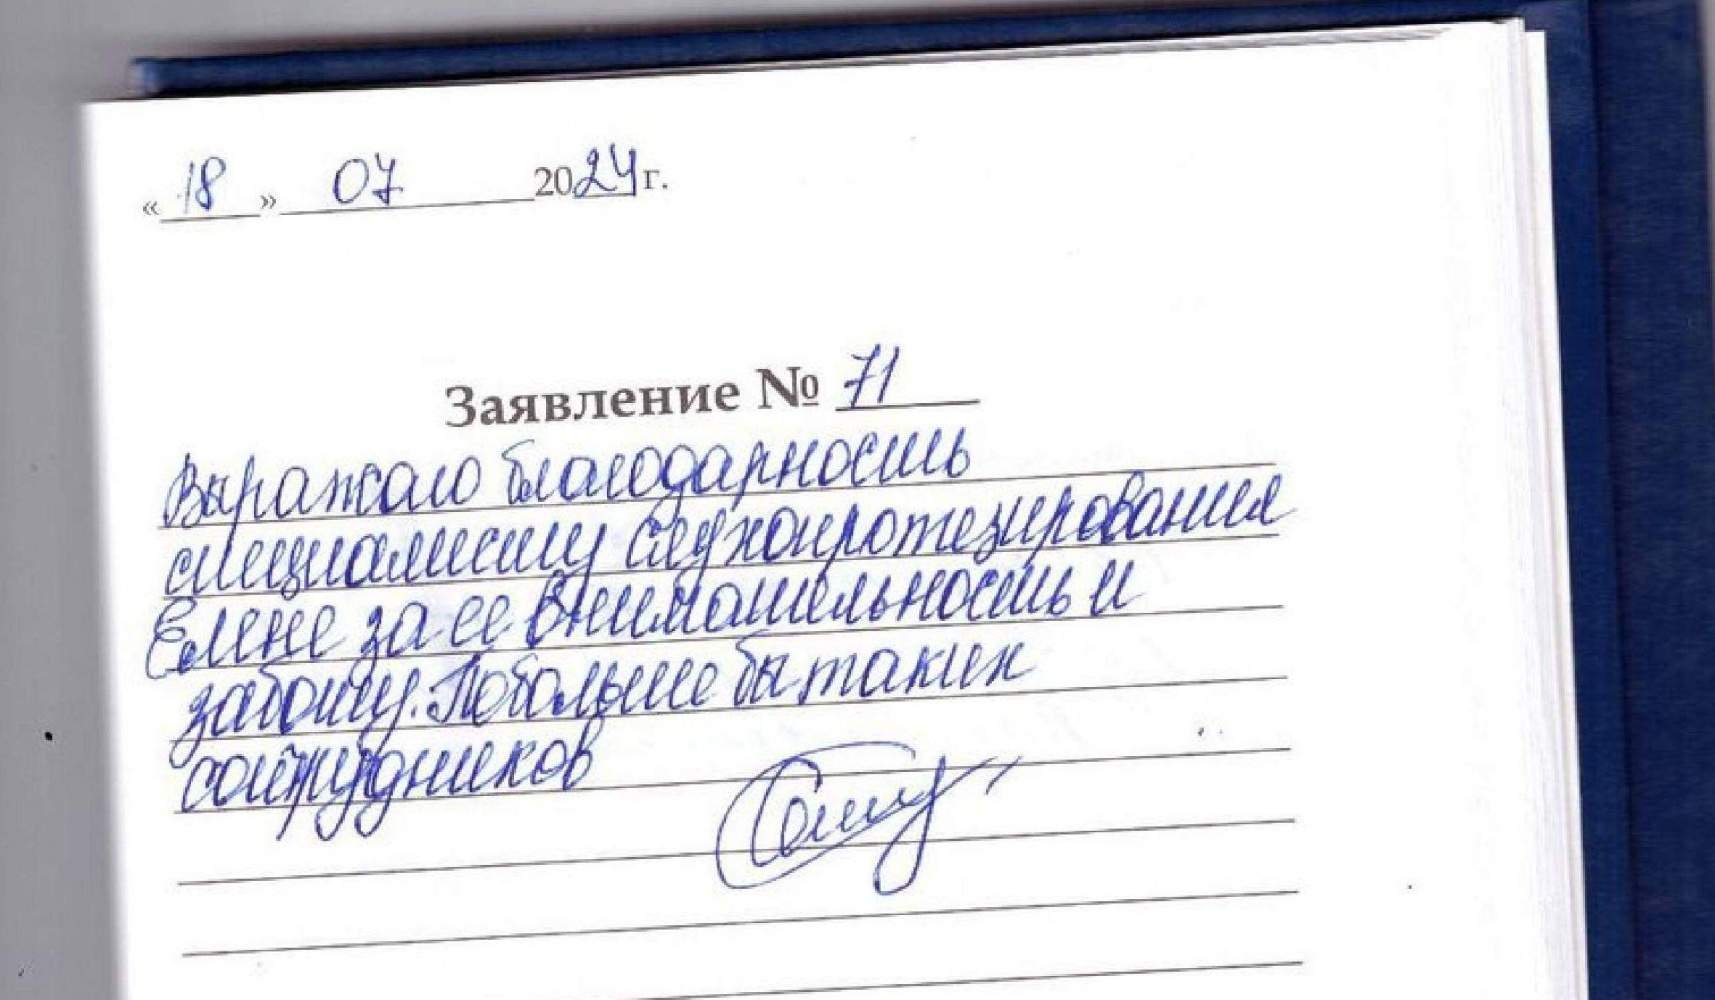 «18» 07 2024 г.
Заявление № 71
Выражаю благодарность
специалисту слухопротезирования
Елене за ее внимательность и
заботу. Побольше бы таких
сотрудников